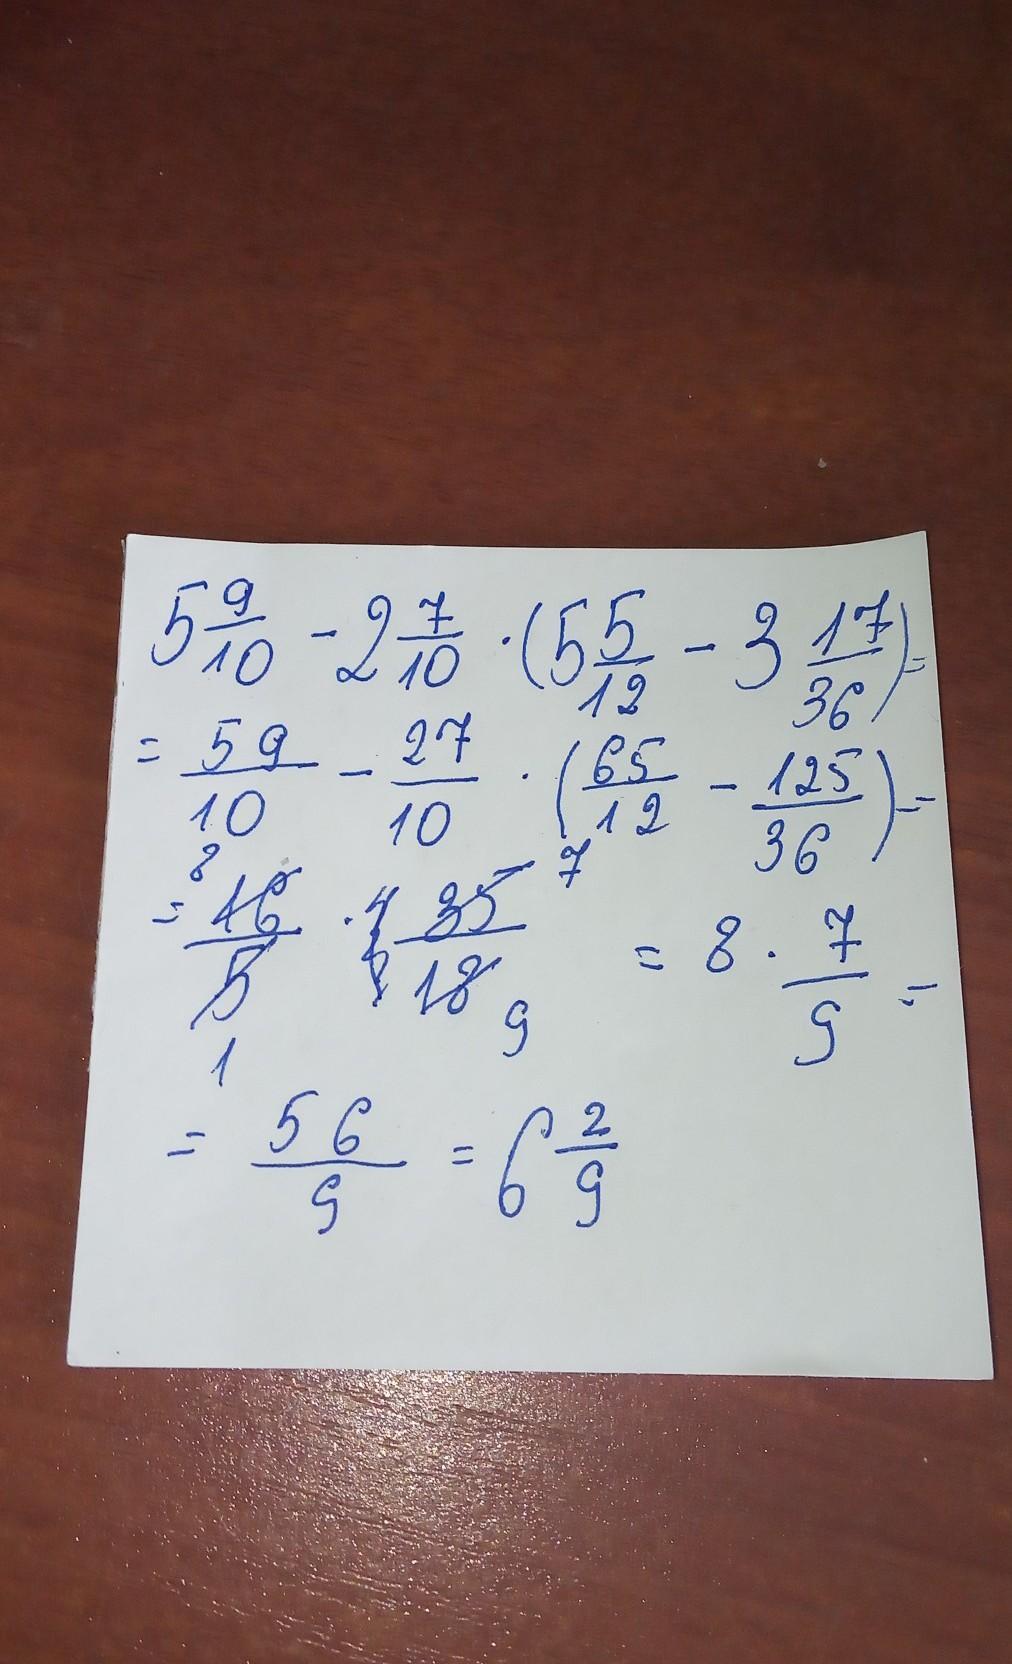 5 9/10 - 2 7/10 · (5 5/12 - 3 17/36) =
= 59/10 - 27/10 · (65/12 - 125/36) =
8 7
= 16/5 · 35/18 = 8 · 7/9 =
1 9
= 56/9 = 6 2/9